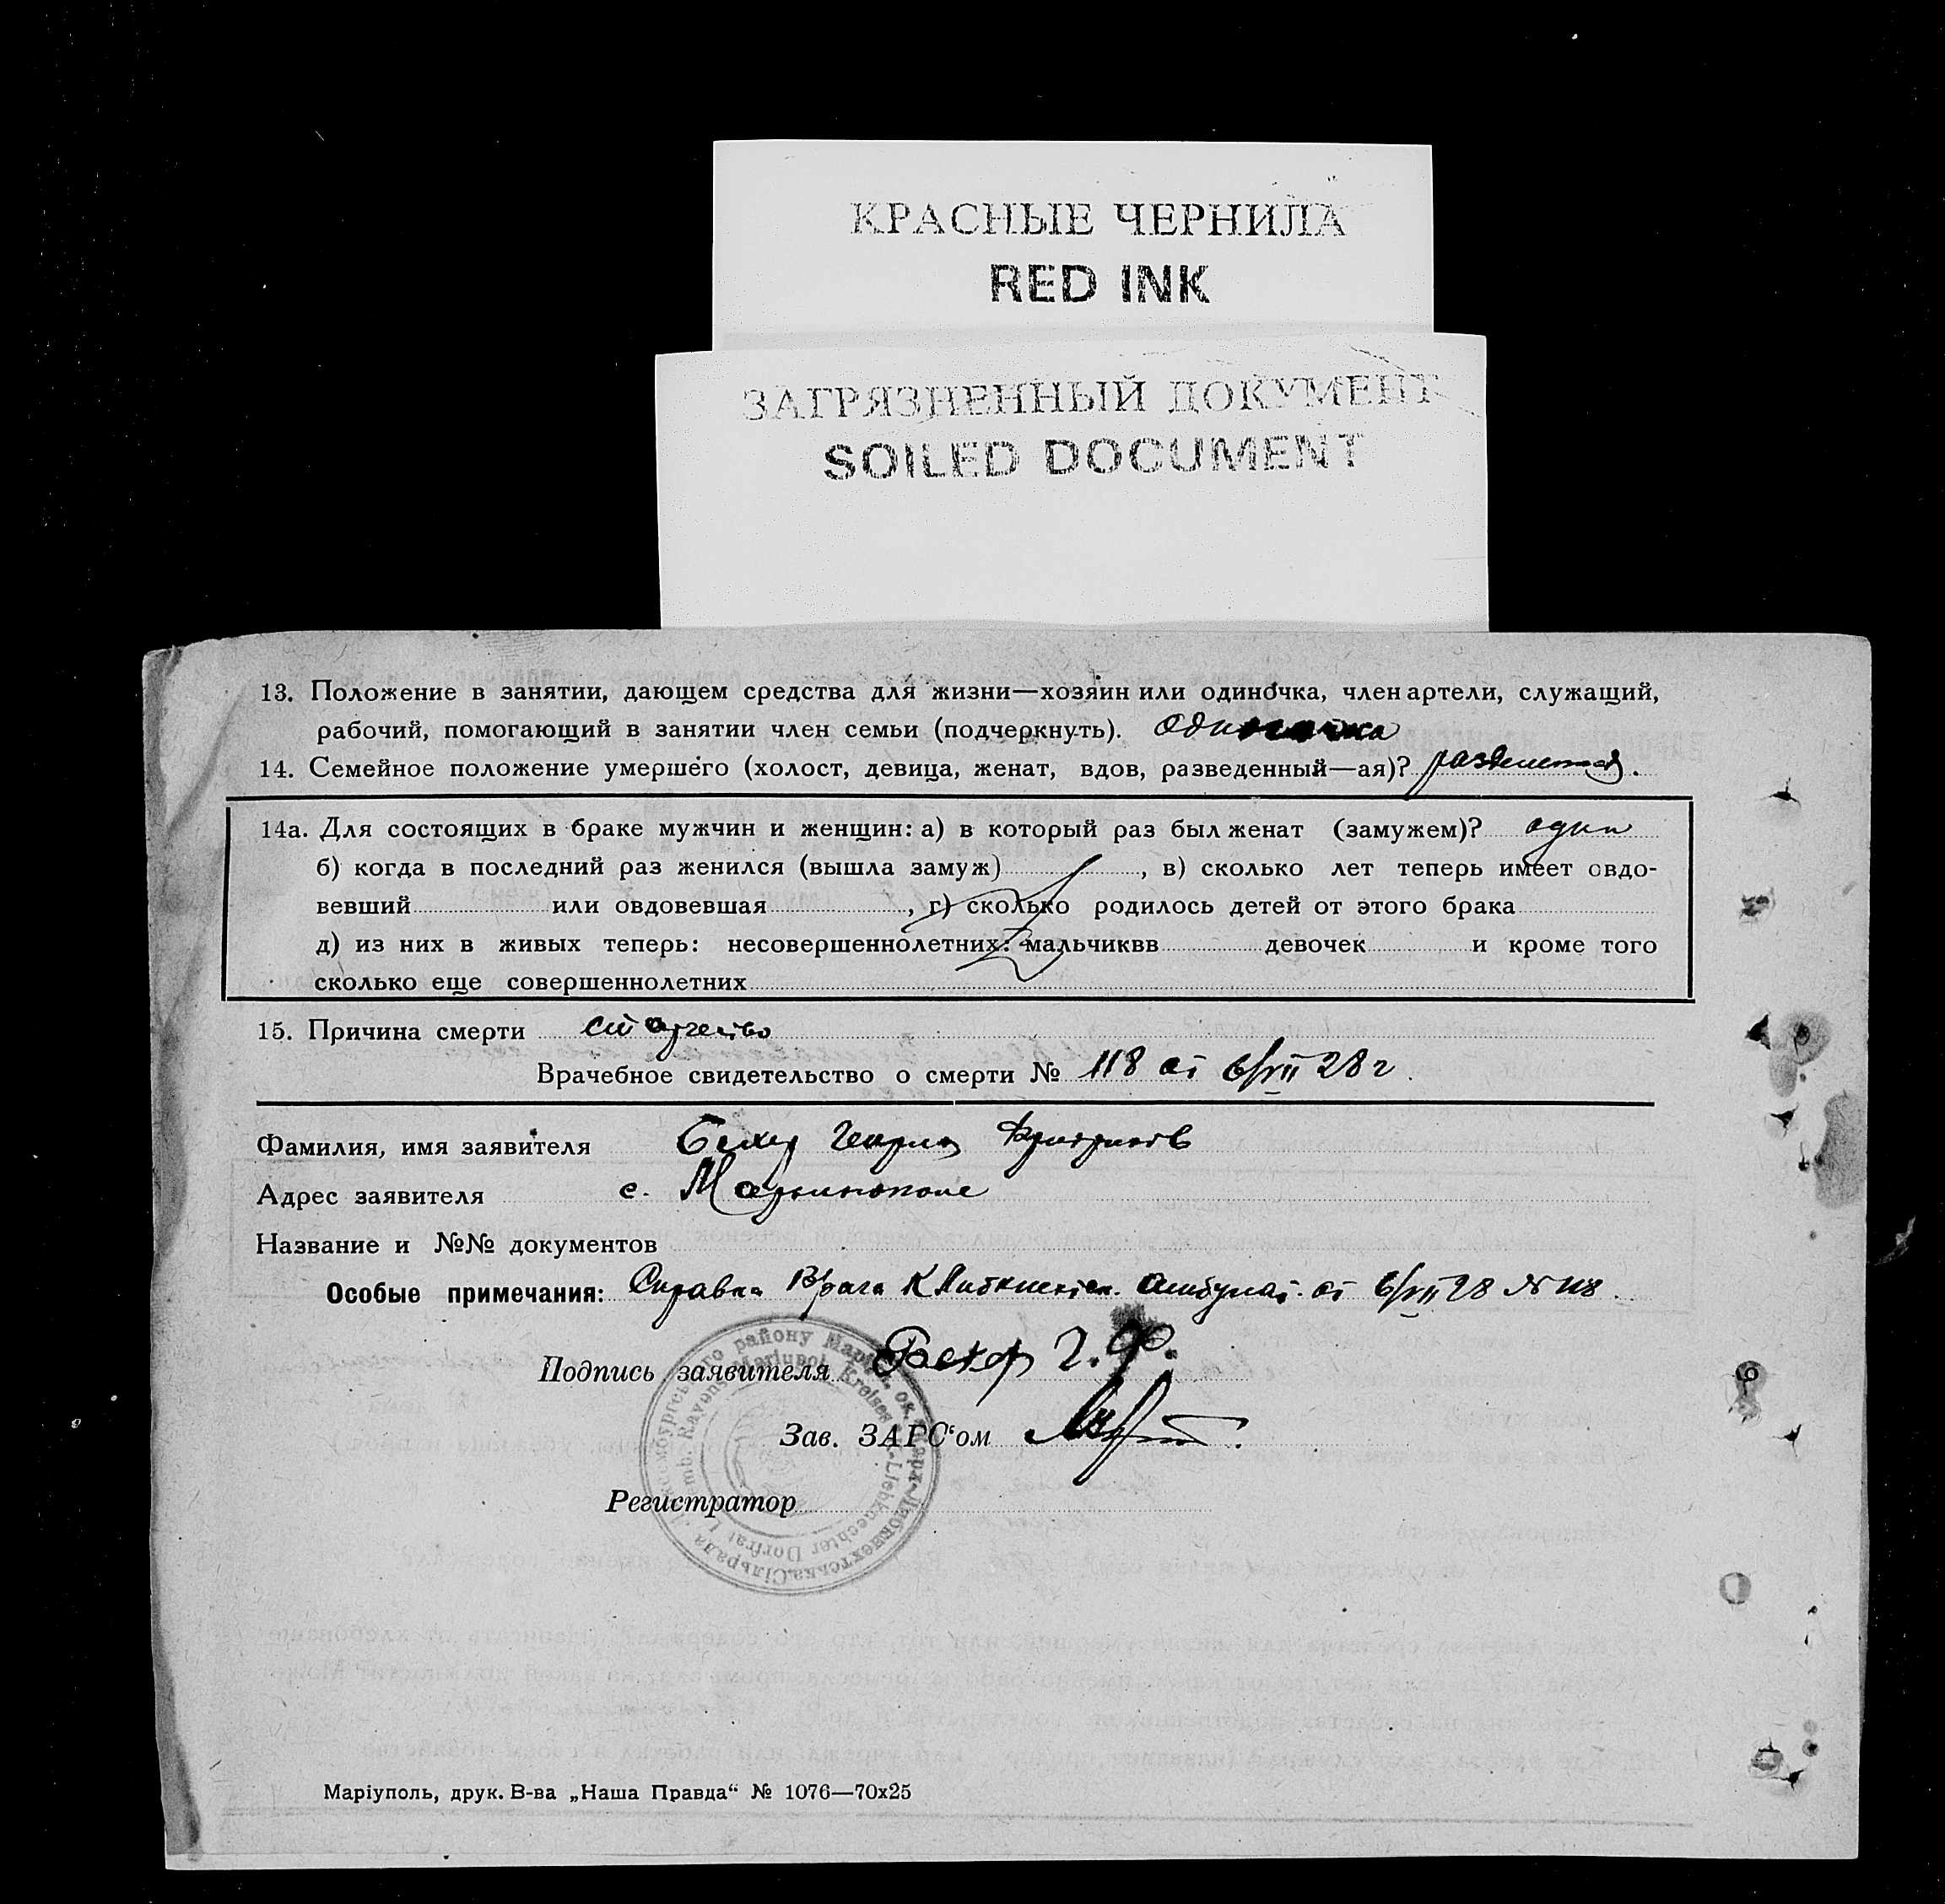 КРАСНЫЕ ЧЕРНИЛА
RED INK
ЗАГРЯЗНЕННЫЙ ДОКУМЕНТ
SOILED DOCUMENT
13. Положение в занятии, дающем средства для жизни—хозяин или одиночка, член артели, служащий,
рабочий, помогающий в занятии член семьи (подчеркнуть). одиночка
14. Семейное положение умершего (холост, девица, женат, вдов, разведенный—ая)?
14а. Для состоящих в браке мужчин и женщин: а) в который раз был женат (замужем)? один
б) когда в последний раз женился (вышла замуж) , в) сколько лет теперь имеет овдо-
вевший или овдовевшая , г) сколько родилось детей от этого брака
д) из них в живых теперь: несовершеннолетних: мальчиквв девочек и кроме того
сколько еще совершеннолетних
15. Причина смерти старчество
Врачебное свидетельство о смерти № 118 от 6/VII 28 г.
Фамилия, имя заявителя
Адрес заявителя с. Марьинополе
Название и №№ документов
Особые примечания: Справка Врача К Либкнехтск. Амбулат. от 6/VII 28 № 118.
Подпись заявителя Г. Ф.
Зав. ЗАГС‘ом
Регистратор
Маріуполь, друк. В-ва „Наша Правда“ № 1076—70х25